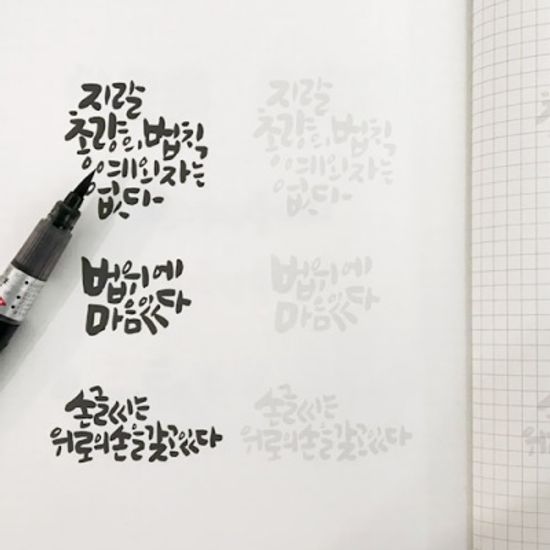 지랄
총량의 법칙
예외 자는
없다
법위에
마음있다
손글씨는
위로의 손을 갖고있다
지랄
총량의 법칙
예외 자는
없다
법위에
마음있다
손글씨는
위로의 손을 갖고있다